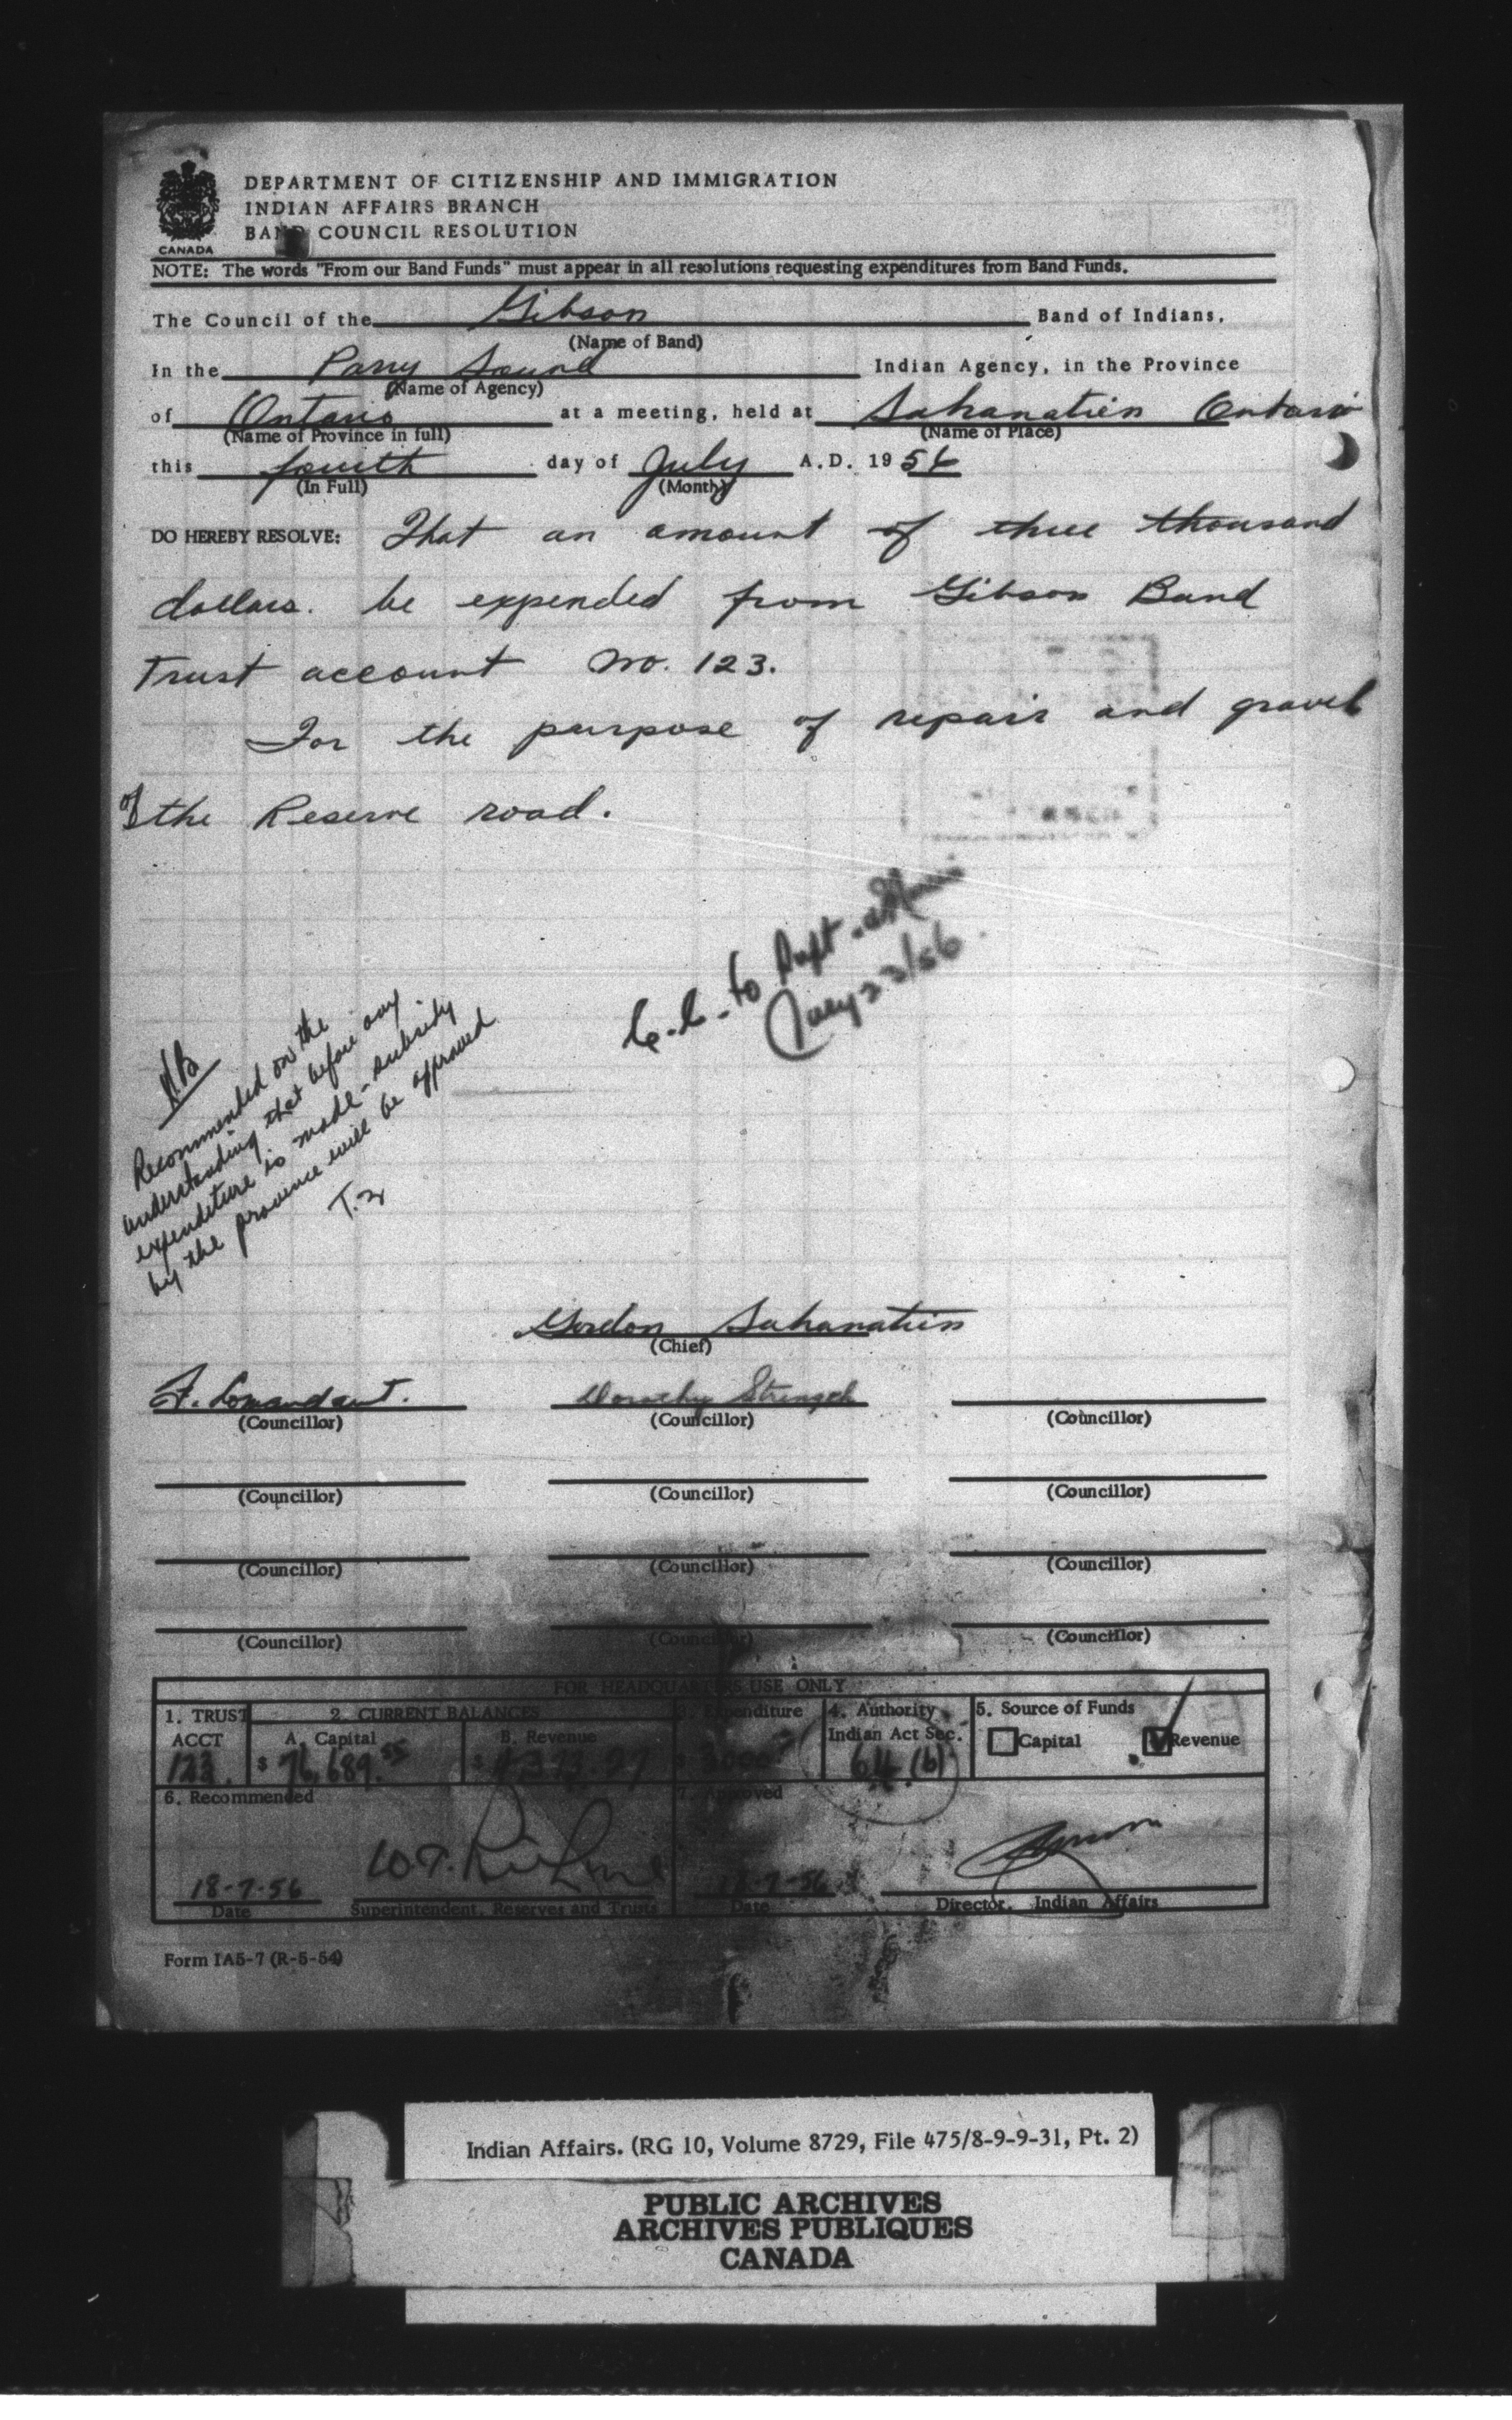 DEPARTMENT OF CITIZENSHIP AND IMMIGRATION
INDIAN AFFAIRS BRANCH
BAND COUNCIL RESOLUTION
CANADA
NOTE: The words "From our Band Funds" must appear in all resolutions requesting expenditures from Band Funds.
The Council of the Gibson Band of Indians,
(Name of Band)
In the Parry Sound Indian Agency, in the Province
(Name of Agency)
of Ontario at a meeting, held at Sahanatien Ontario
(Name of Province in full) (Name of Place)
this fourth day of July A.D. 1956
(In Full) (Month)
DO HEREBY RESOLVE: That an amount of three thousand
dollars. be expended from Gibson Band
Trust account No. 123.
For the purpose of repair and gravel
of the Reserve road.
C.C. to Supt.
July 23/56
N.B
Recommended on the
understanding that before any
expenditure is made - subsidy
by the province will be approved
Gordon Sahanatien
(Chief)
F. Commandant. Dorothy Strength
(Councillor) (Councillor) (Councillor)
(Councillor) (Councillor) (Councillor)
(Councillor) (Councillor) (Councillor)
(Councillor) (Councillor) (Councillor)
FOR HEADQUARTERS USE ONLY
1. TRUST ACCT 2. CURRENT BALANCES 3. Expenditure 4. Authority Indian Act Sec. 5. Source of Funds
A. Capital B. Revenue Capital Revenue
123. $ 76,689.55 $ $ 3000 64 (b)
6. Recommended 7. Approved
18-7-56 18-7-56
Date Superintendent, Reserves and Trusts Date Director, Indian Affairs
Form IA5-7 (R-5-54)
Indian Affairs. (RG 10, Volume 8729, File 475/8-9-9-31, Pt. 2)
PUBLIC ARCHIVES
ARCHIVES PUBLIQUES
CANADA